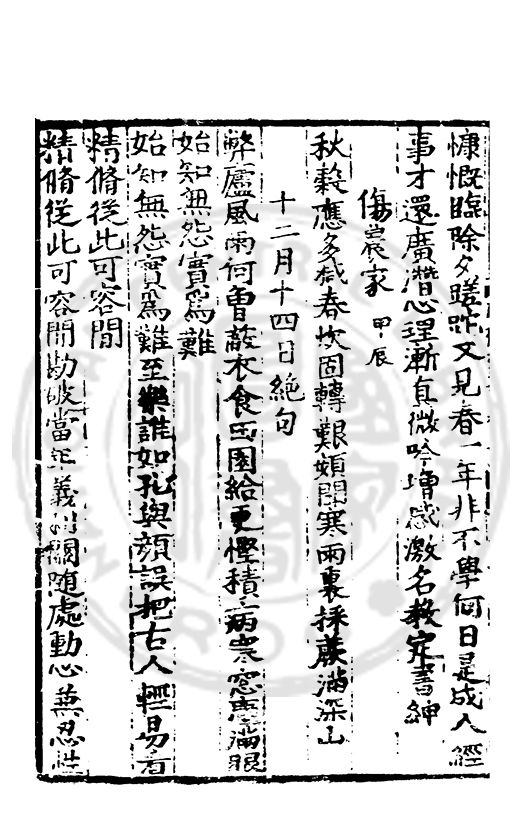 慷慨臨除夕蹉跎又見春一年非不學何日是成人經
事才還廣潛心理漸真微吟增感激名教定書紳
傷農家 甲辰
秋穀應多減春炊固轉艱頻聞寒雨裏採蕨滿深山
十二月十四日絕句
弊廬風雨何曾蔽衣食田園給更慳積病寒窓滿眼
始知無怨實為難
始知無怨實為難至樂誰如孔與顏誤把古人輕易看
精脩從此可容閒
精脩從此可容閒勘破當年義利關隨處動心兼忍性